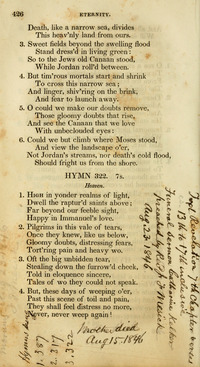 426
ETERNITY.
Death, like a narrow sea, divides
This heav'nly land from ours.
3. Sweet fields beyond the swelling flood
Stand dress'd in living green:
So to the Jews old Canaan stood,
While Jordan roll'd between.
4. But tim'rous mortals start and shrink
To cross this narrow sea;
And linger, shiv'ring on the brink,
And fear to launch away.
5. O could we make our doubts remove,
Those gloomy doubts that rise,
And see the Canaan that we love
With unbeclouded eyes:
6. Could we but climb where Moses stood,
And view the landscape o'er,
Not Jordan's streams, nor death's cold flood,
Should fright us from the shore.
HYMN 322. 7s.
Heaven.
1. HIGH in yonder realms of light,
Dwell the raptur'd saints above;
Far beyond our feeble sight,
Happy in Immanuel's love.
2. Pilgrims in this vale of tears,
Once they knew, like us below,
Gloomy doubts, distressing fears,
Tort'ring pain and heavy wo.
3. Oft the big unbidden tear,
Stealing down the furrow'd cheek,
Told in eloquence sincere,
Tales of wo they could not speak.
4. But, these days of weeping o'er,
Past this scene of toil and pain,
They shall feel distress no more,
Never, never weep again!
Mother died
Aug 15. 1846
7th Chapter
Aug 23. 1846
322